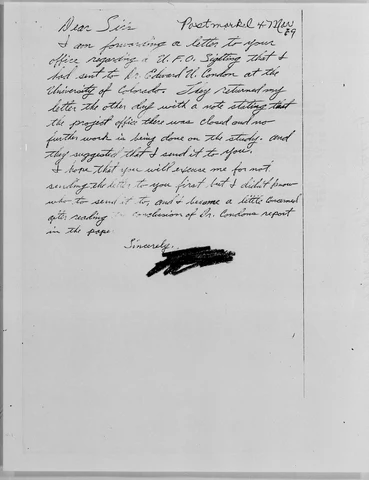 Dear Sirs Postmarked 4 Mar
69
I am forwarding a letter to your
office regarding a U.F.O. Sighting that I
had sent to Dr. Edward U. Condon at the
University of Colorado. They returned my
letter the other day with a note stating that
the project office there was closed and no
further work is being done on the study. and
they suggested that I send it to you.
I hope that you will excuse me for not
sending the letter to you first but I didn't know
who to send it to, and I became a little concerned
after reading conclusion of Dr. Condons report
in the pape
Sincerely,